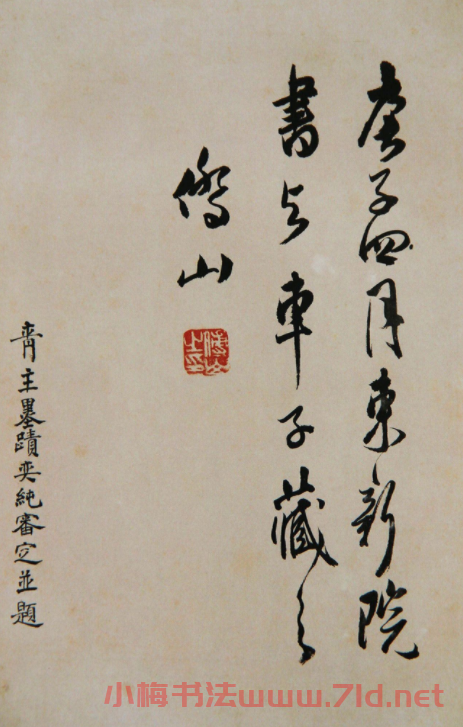 庚子四月東新院
書与車子藏之
傅山
傅山之印
青主墨蹟奕純審定並題
小梅书法www.7ld.net